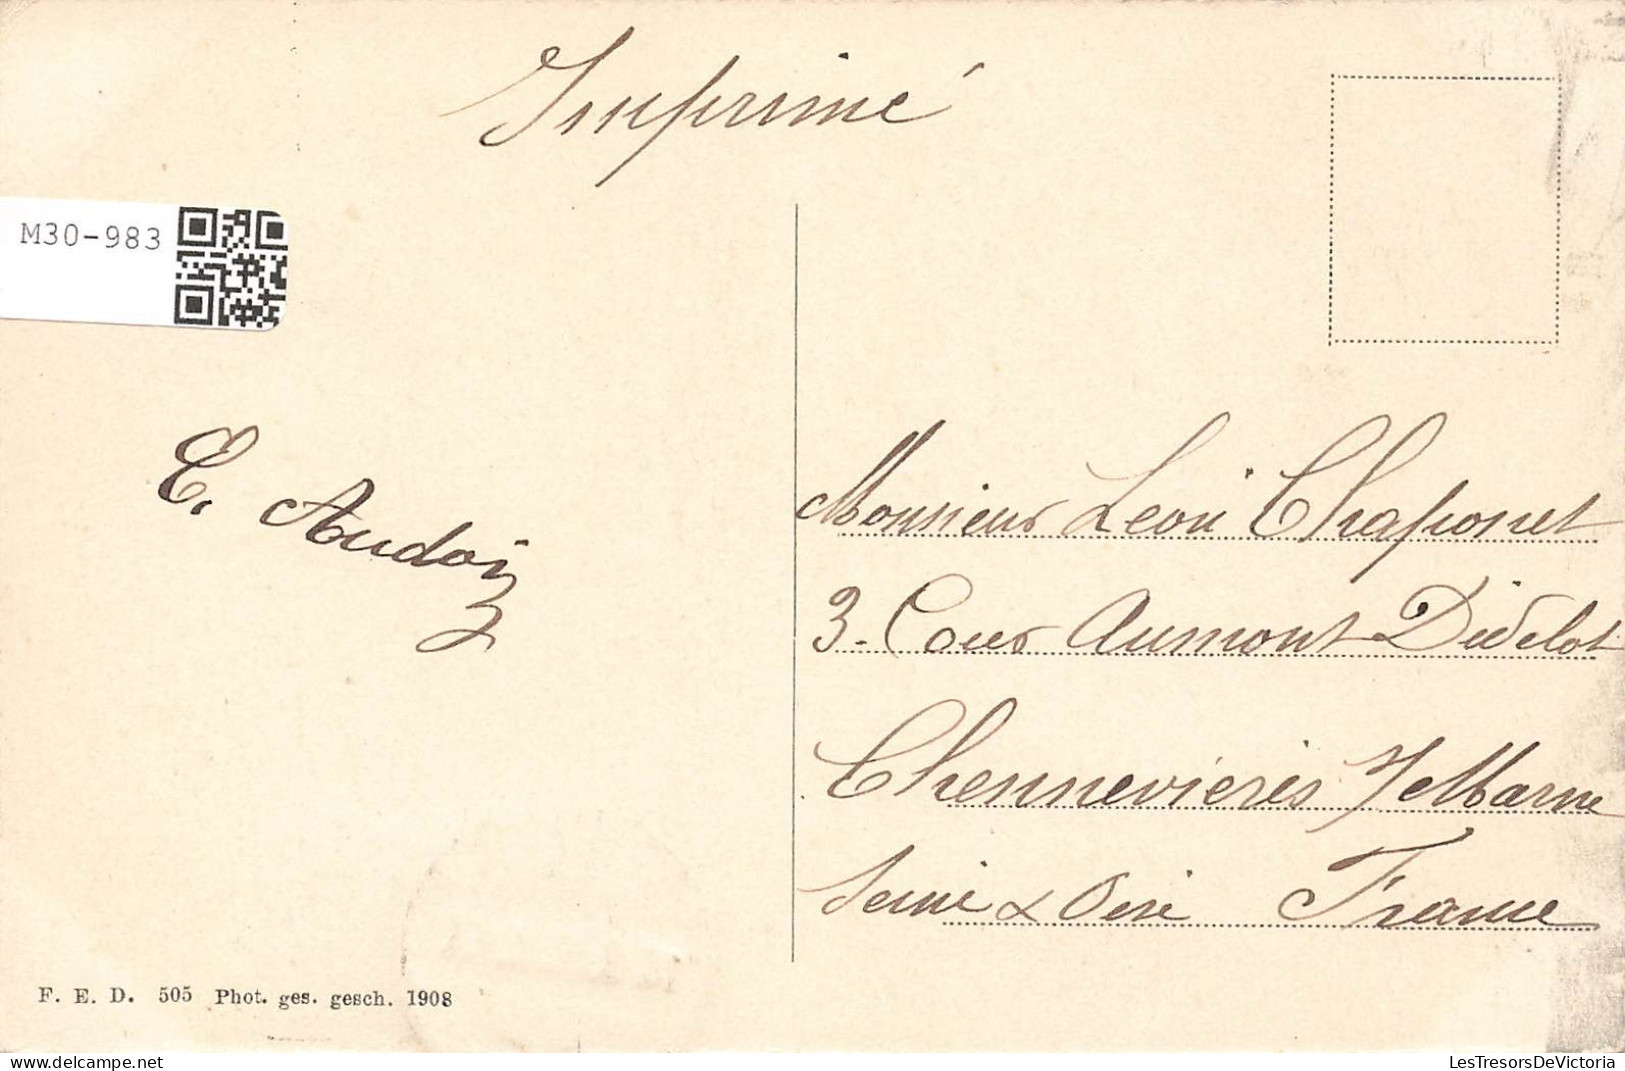 Imprimé
M30-983
E. Audoin
Monsieur Léon Chaponet
3. Cour Aumont Didelot
Chennevières s/Marne
Seine & Oise France
F. E. D. 505 Phot. ges. gesch. 1908
www.delcampe.net
LesTresorsDeVictoria